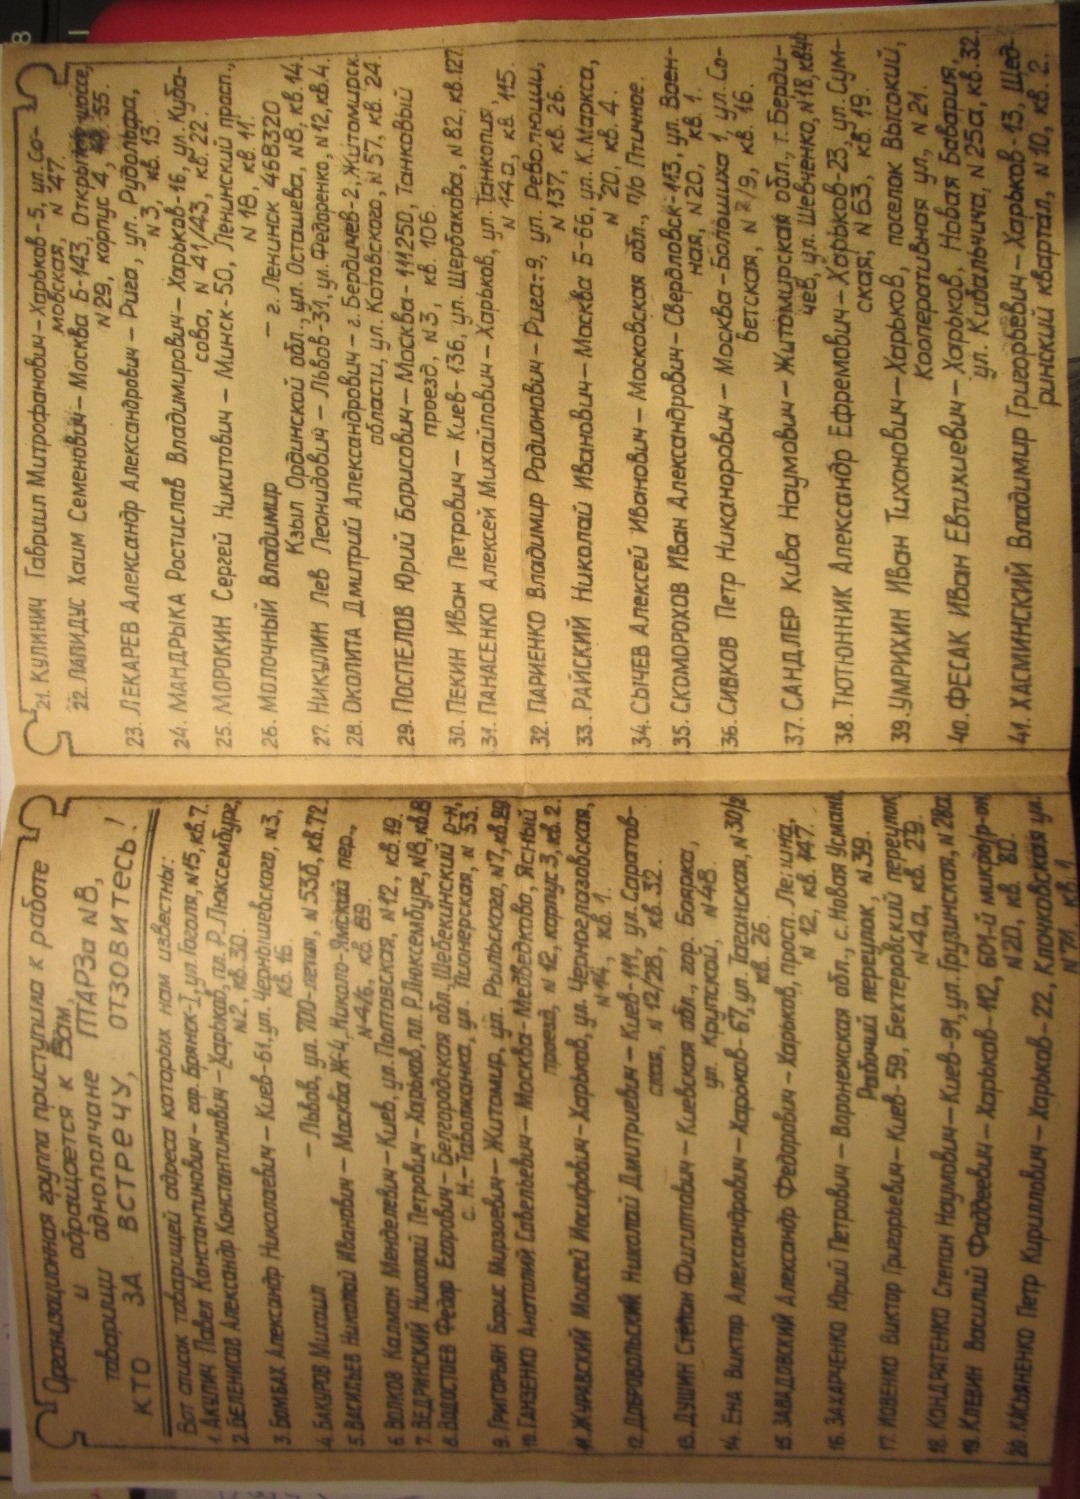 Организационная группа приступила к работе
и обращается к Вам,
товарищи однополчане ПТАРЗа №8,
КТО ЗА ВСТРЕЧУ, ОТЗОВИТЕСЬ!
Вот список товарищей адреса которых нам известны:
1. АКУЛИЧ Павел Константинович – гор. Брянск-I, ул. Гоголя, №15, кв. 7.
2. БЕЛЕНИСОВ Александр Константинович – Харьков, пл. Р. Люксембург,
№2, кв. 30.
3. БОМБАХ Александр Николаевич – Киев-61, ул. Чернышевского, №3,
кв. 16
4. БАКУРОВ Михаил – Львов, ул. 700-летия, №53б, кв. 72.
5. ВАСИЛЬЕВ Николай Иванович – Москва Ж-4, Николо-Ямской пер.,
№4/6, кв. 89.
6. ВОЛКОВ Калман Менделевич – Киев, ул. Полтавская, №12, кв. 19.
7. ВЕДРИНСКИЙ Николай Петрович – Харьков, пл. Р. Люксембург, №8, кв. 8
8. ВОДОСТОЕВ Федор Егорович – Белгородская обл. Шебекинский р-н,
с. Н.-Таволжанка, ул. Пионерская, №53.
9. ГРИГОРЬЯН Борис Мирзоевич – Житомир, ул. Рыльского, №7, кв. 89
10. ГАНЗЕНКО Анатолий Савельевич – Москва-Медведково, Ясный
проезд, №12, корпус 3, кв. 2.
11. ЖУРАВСКИЙ Моисей Иосифович – Харьков, ул. Черноглазовская,
№14, кв. 1.
12. ДОБРОВОЛЬСКИЙ Николай Дмитриевич – Киев-111, ул. Саратов-
ская, №12/28, кв. 32
13. ДУШИН Степан – Киевская обл., гор. Боярка,
ул. Крупской, №48.
14. ЕНА Виктор Александрович – Харьков-67, ул. №30/2
кв. 26
15. ЗАВАДОВСКИЙ Александр Федорович – Харьков, просп. Ленина,
№12, кв. 147.
16. ЗАХАРЧЕНКО Юрий Петрович – Воронежская обл., с. Новая Усмань,
Рабочий переулок, №39.
17. ИОВЕНКО Виктор Григорьевич – Киев-59, Бехтеровский переулок
№4а, кв. 29.
18. КОНДРАТЕНКО Степан Наумович – Киев-91, ул. Грузинская, №28а
19. КЛЕВИН Василий Фаддеевич – Харьков-112, 601-й микрор-он
№20, кв. 80.
20. КАСЬЯНЕНКО Петр Кириллович – Харьков-22, Клочковская ул.
№71, кв. 1
21. КУЛИНИЧ Гавриил Митрофанович – Харьков-5, ул. Со-
мовская, №47.
22. ЛАПИДУС Хаим Семенович – Москва Б-143, Открытое шоссе,
№29, корпус 4, 55.
23. ЛЕКАРЕВ Александр Александрович – Рига, ул. Рудольфа,
№3, кв. 13.
24. МАНДРЫКА Ростислав Владимирович – Харьков-16, ул. Куба-
сова, №41/43, кв. 22.
25. МОРОКИН Сергей Никитович – Минск-50, Ленинский просп.,
№18, кв. 11.
26. МОЛОЧНЫЙ Владимир – г. Ленинск 468320
Кзыл Ординской обл., ул. Осташева, №8, кв. 14
27. НИКУЛИН Лев Леонидович – Львов-31, ул. Федоренко, №12, кв. 4.
28. ОКОЛИТА Дмитрий Александрович – г. Бердичев-2, Житомирск.
области, ул. Котовского, №57, кв. 24.
29. ПОСПЕЛОВ Юрий Борисович – Москва-111250, Танковый
проезд, №3, кв. 106
30. ПЕКИН Иван Петрович – Киев-136, ул. Щербакова, №82, кв. 127.
31. ПАНАСЕНКО Алексей Михайлович – Харьков, ул. Танкопия,
№14а, кв. 115.
32. ПАРИЕНКО Владимир Радионович – Рига-9, ул. Революции,
№137, кв. 26.
33. РАЙСКИЙ Николай Иванович – Москва Б-66, ул. К. Маркса,
№20, кв. 4.
34. СЫЧЕВ Алексей Иванович – Московская обл., п/о Птичное.
35. СКОМОРОХОВ Иван Александрович – Свердловск-113, ул. Воен-
ная, №20, кв. 1.
36. СИВКОВ Петр Никанорович – Москва-Болошиха 1, ул. Со-
ветская, кв. 16.
37. САНДЛЕР Кива Наумович – Житомирская обл., г. Берди-
чев, ул. Шевченко, №18, кв. 44
38. ТЮТЮННИК Александр Ефремович – Харьков-23, ул. Сум-
ская, №63, кв. 19.
39. УМРИХИН Иван Тихонович – Харьков, поселок Высокий,
Кооперативная ул, №21.
40. ФЕСАК Иван Евтихиевич – Харьков, Новая Бавария,
ул. Кибальчича, №25а, кв. 32.
41. ХАСМИНСКИЙ Владимир Григорьевич – Харьков-13, Шед-
ринский квартал, №10, кв. 2.